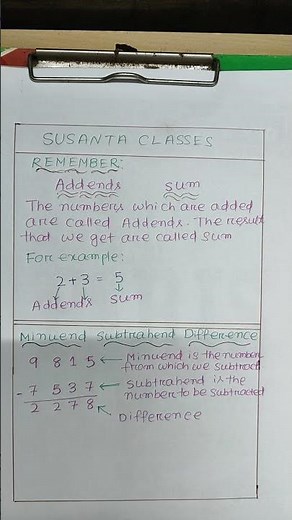 SUSANTA CLASSES
REMEMBER:
Addends sum
The numbers which are added
are called Addends. The result
that we get are called sum
For example:
2 + 3 = 5
Addends sum
Minuend Subtrahend Difference
9 8 1 5 ← Minuend is the number
from which we subtract
- 7 5 3 7 ← Subtrahend is the
number to be subtracted
2 2 7 8 ← Difference